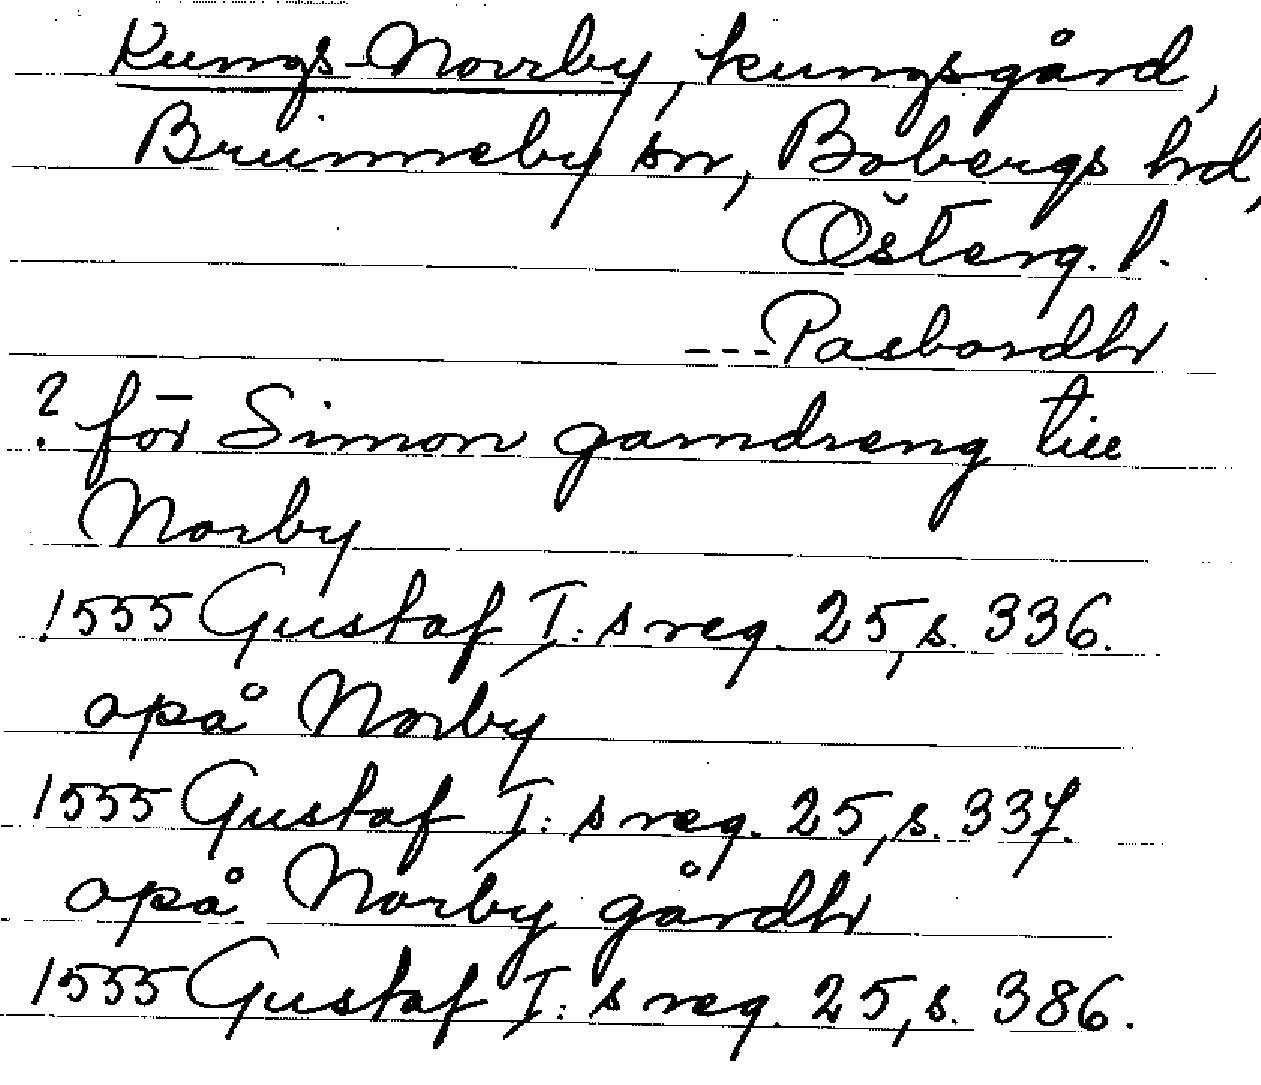 Kungs-Norrby, kungsgård,
Brunneby sn, Bobergs hd,
Österg. l.
---Pasbordh
? för Simon gamdreng till
Norby
1555 Gustaf I:s reg. 25, s. 336.
opå Norby
1555 Gustaf I:s reg. 25, s. 337.
opå Norby gårdh
1555 Gustaf I:s reg. 25, s. 386.